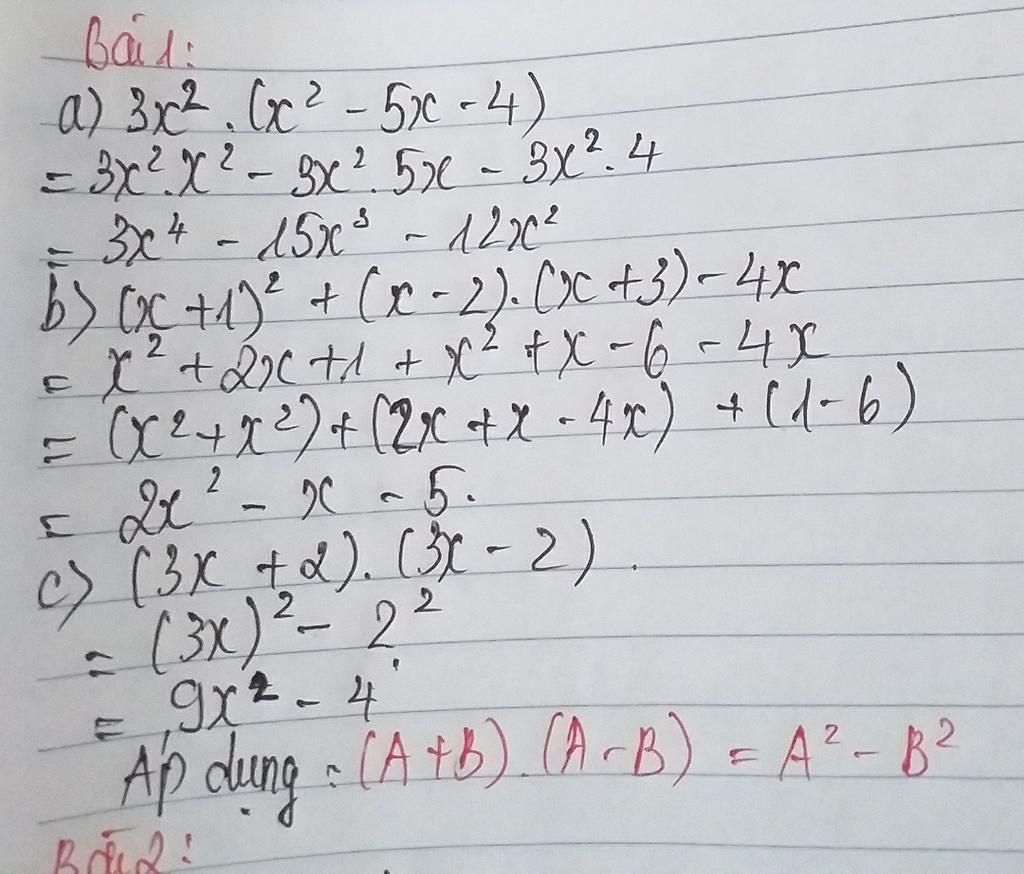 Bài 1:
a) 3x² . (x² - 5x - 4)
= 3x² . x² - 3x² . 5x - 3x² . 4
= 3x⁴ - 15x³ - 12x²
b) (x + 1)² + (x - 2) . (x + 3) - 4x
= x² + 2x + 1 + x² + x - 6 - 4x
= (x² + x²) + (2x + x - 4x) + (1 - 6)
= 2x² - x - 5.
c) (3x + 2) . (3x - 2) .
= (3x)² - 2²
= 9x² - 4
Áp dụng : (A + B) . (A - B) = A² - B²
Bài 2: